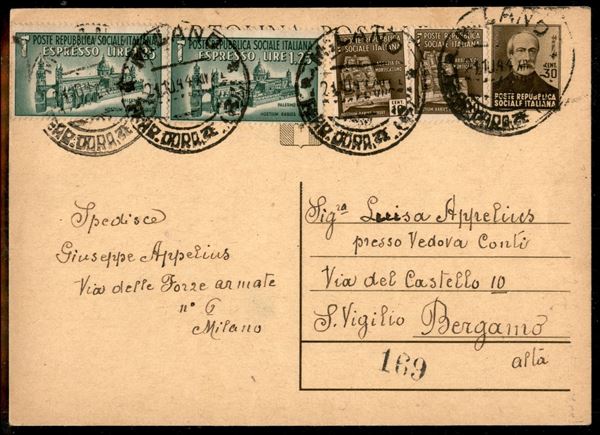 CARTOLINA POSTALE
POSTE REPUBBLICA SOCIALE ITALIANA
ESPRESSO LIRE 1,25
POSTE REPUBBLICA SOCIALE ITALIANA
ESPRESSO LIRE 1,25
PALERMO
HOSTIUM RABIES
CENT. 30
POSTE REPUBBLICA
SOCIALE ITALIANA
MILANO
Spedisce
Giuseppe Appelius
Via delle Forze armate
n° 6
Milano
Sig.ra Luisa Appelius
presso Vedova Conti
Via del Castello 10
S. Vigilio Bergamo
alta
169